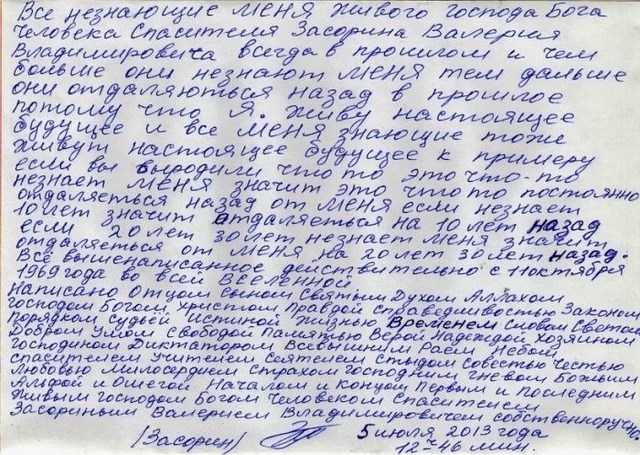 Все незнающие меня живого господа Бога
человека Спасителя Засорина Валерия
Владимировича всегда в прошлом и чем
больше они незнают меня тем дальше
они отдаляються назад в прошлое
потому что Я. живу настоящее
будущее и все меня знающие тоже
живут настоящее будущее к примеру
если вы выродили что то это что-то
незнает меня значит это что то постоянно
отдаляеться назад от меня если незнает
10 лет значит отдаляеться на 10 лет назад
если 20 лет 30 лет незнает меня значит
отдаляеться от меня на 20 лет 30 лет назад.
Всё вышенаписанное действительно с 11 октября
1969 года во всей Вселенной
Написано Отцом Сыном Святым Духом Аллахом
господом Богом Христом Правдой Справедливостью Законом
Порядком Судьёй Истиной Жизнью Временем Словом Светом
Добром Умом Свободой Памятью Верой Надеждой Хозяином
Господином Диктатором Всевышним Раем Небом
Спасителем Учителем Сеятелем Стыдом Совестью Честью
Любовью Милосердием Страхом Господним гневом Божьим
Альфой и Омегой Началом и Концом Первым и Последним
Живым господом Богом Человеком Спасителем
Засориным Валерием Владимировичем собственноручно
(Засорин) 5 июля 2013 года
12 ч-46 мин.